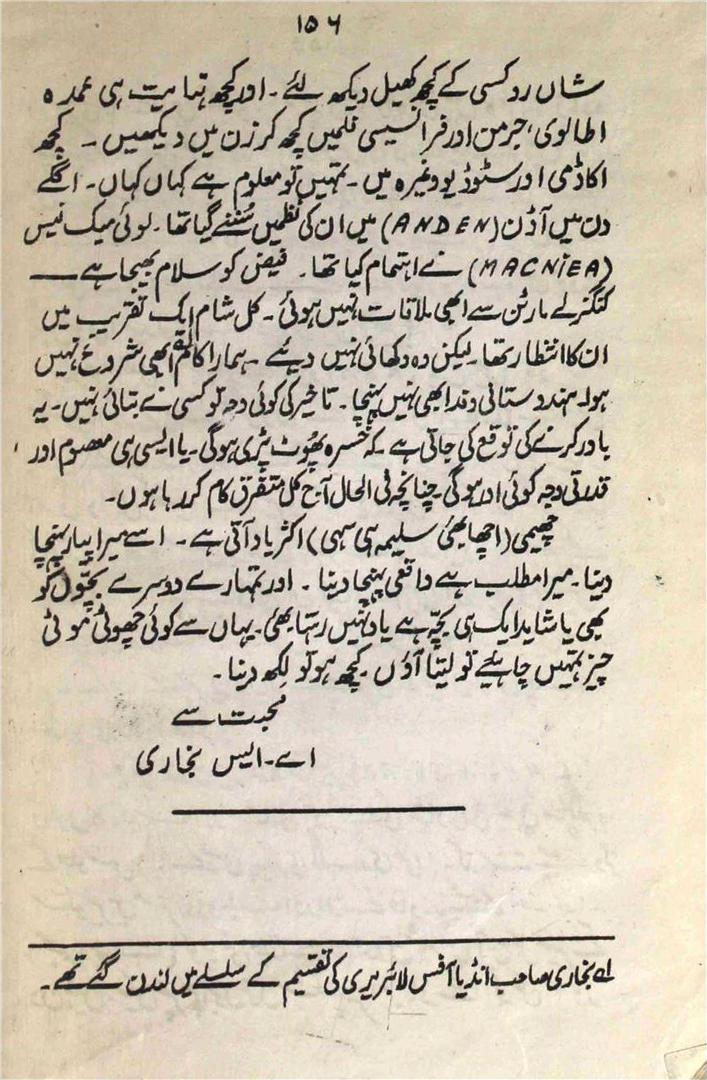 ۱۵۶
شاں رو کسی کے کچھ کھیل دیکھ لئے۔ اور کچھ نہایت ہی عمدہ
اطالوی، جرمن اور فرانسیسی فلمیں کچھ کرزن میں دیکھیں۔ کچھ
اکاڈمی اور سٹوڈیو وغیرہ میں۔ تمہیں تو معلوم ہے کہاں کہاں۔ اگلے
دن میں آڈن (ANDEN) میں ان کی نظمیں سُننے گیا تھا۔ لوئی میک نیس
(MACNIEA) نے اہتمام کیا تھا۔ فیض کو سلام بھیجا ہے ——
کنگزلے مارٹن سے ابھی ملاقات نہیں ہوئی۔ کل شام ایک تقریب میں
ان کا انتظار تھا۔ لیکن وہ دکھائی نہیں دیئے۔ ہمارا کام ابھی شروع نہیں
ہوا۔ ہندوستانی وفد ابھی نہیں پہنچا۔ تاخیر کی کوئی وجہ تو کسی نے بتائی نہیں۔ یہ
باور کرنے کی توقع کی جاتی ہے۔ کہ خسرہ پھُوٹ پڑی ہوگی۔ یا ایسی ہی معصوم اور
قدرتی وجہ کوئی اور ہوگی۔ چنانچہ فی الحال آج کل متفرق کام کر رہا ہوں۔
چھیمی (اچھا بھئی سلیمہ ہی سہی) اکثر یاد آتی ہے۔ اسے میرا پیار پہنچا
دینا۔ میرا مطلب ہے واقعی پہنچا دینا۔ اور تمہارے دوسرے بچّوں کو
بھی یا شاید ایک ہی بچّہ ہے یاد نہیں رہتا بھئی۔ یہاں سے کوئی چھوٹی موٹی
چیز تمہیں چاہیئے تو لیتا آؤں۔ کچھ ہو تو لکھ دینا۔
محبت سے
اے۔ ایس بخاری
لے بخاری صاحب انڈیا آفس لائبریری کی تقسیم کے سلسلے میں لندن گئے تھے۔